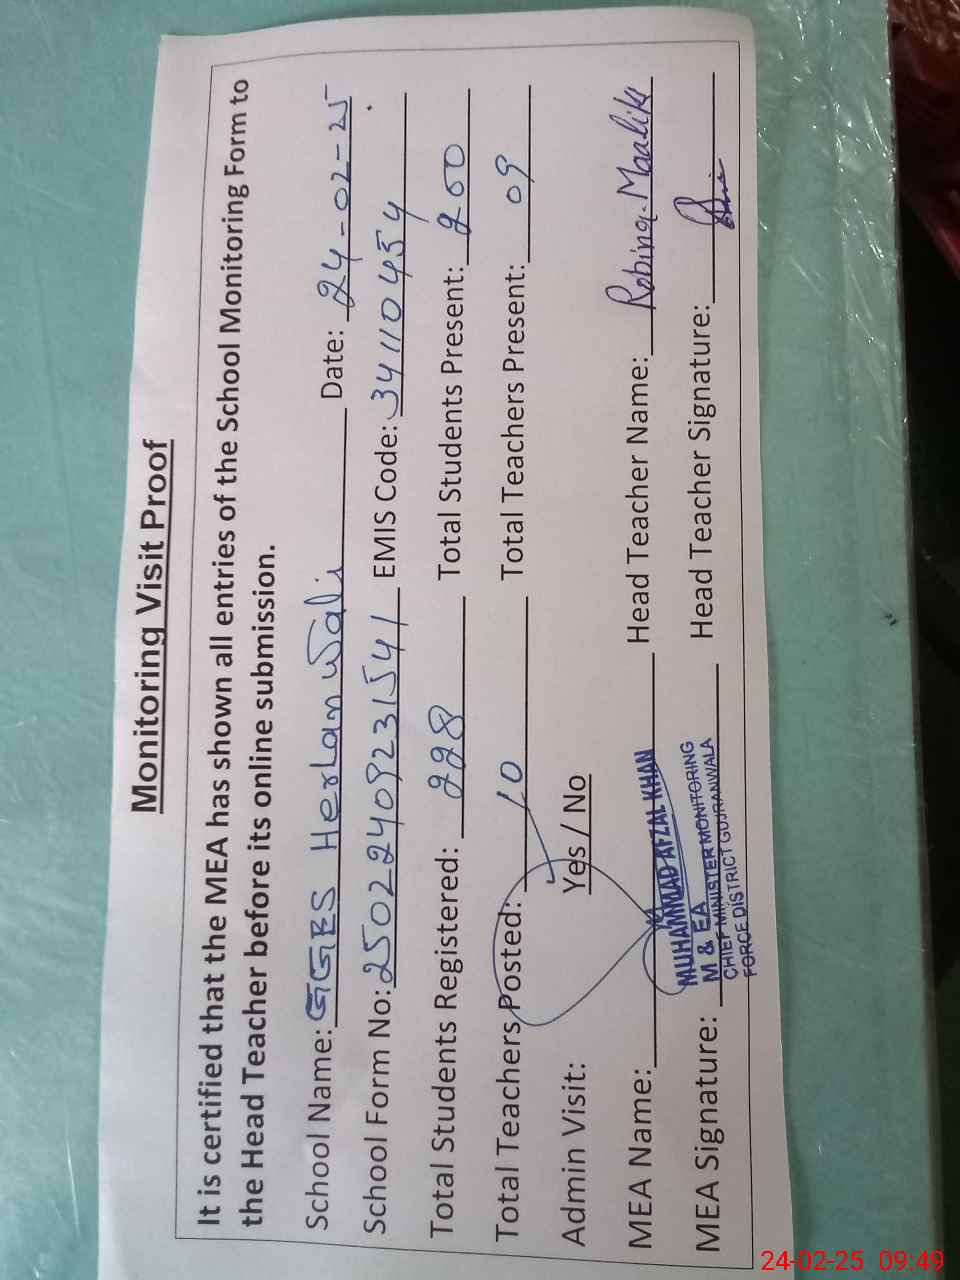 Monitoring Visit Proof
It is certified that the MEA has shown all entries of the School Monitoring Form to
the Head Teacher before its online submission.
School Name: GGES Herlanwali Date: 24-02-25
School Form No: 25022408231541 EMIS Code: 34110454
Total Students Registered: 228 Total Students Present: 200
Total Teachers Posted: 10 Total Teachers Present: 09
Admin Visit: Yes / No
MEA Name: Head Teacher Name: Robina Maalik
MEA Signature: Head Teacher Signature:
MUHAMMAD AFZAL KHAN
M & EA
CHIEF MINISTER MONITORING
FORCE DISTRICT GUJRANWALA
24-02-25 09:49